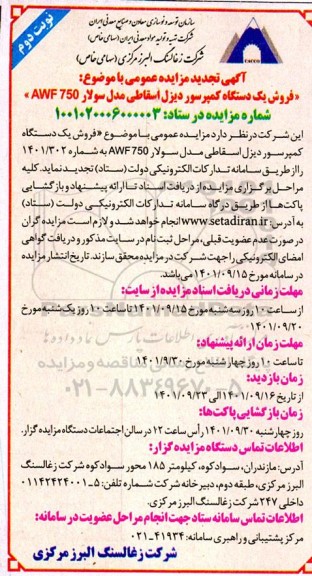 نوبت دوم
سازمان توسعه و نوسازی معادن و صنایع معدنی ایران
شرکت تهیه و تولید مواد معدنی ایران (سهامی خاص)
شرکت زغالسنگ البرز مرکزی (سهامی خاص)
آگهی تجدید مزایده عمومی با موضوع:
«فروش یک دستگاه کمپرسور دیزل اسقاطی مدل سولار AWF 750 »
شماره مزایده در ستاد: ۱۰۰۱۰۲۰۰۰۶۰۰۰۰۰۳
این شرکت در نظر دارد مزایده عمومی با موضوع «فروش یک دستگاه
کمپرسور دیزل اسقاطی مدل سولار AWF 750 به شماره ۱۴۰۱/۳۰۲
را از طریق سامانه تدارکات الکترونیکی دولت (ستاد) تجدید نماید. کلیه
مراحل برگزاری مزایده از دریافت اسناد تا ارائه پیشنهاد و بازگشایی
پاکت‌ها از طریق درگاه سامانه تدارکات الکترونیکی دولت (ستاد)
به آدرس: www.setadiran.ir انجام خواهد شد و لازم است مزایده گران
در صورت عدم عضویت قبلی، مراحل ثبت نام در سایت مذکور و دریافت گواهی
امضای الکترونیکی را جهت شرکت در مزایده محقق سازند. تاریخ انتشار مزایده
در سامانه مورخ ۱۴۰۱/۰۹/۱۵ می‌باشد.
مهلت زمانی دریافت اسناد مزایده از سایت:
از ساعت ۱۰ روز سه شنبه مورخ ۱۴۰۱/۰۹/۱۵ تا ساعت ۱۰ روز یک شنبه مورخ
۱۴۰۱/۰۹/۲۰
مهلت زمان ارائه پیشنهاد:
تا ساعت ۱۰ روز چهار شنبه مورخ ۱۴۰۱/۹/۳۰
زمان بازدید:
از تاریخ ۱۴۰۱/۰۹/۱۶ الی ۱۴۰۱/۰۹/۲۳
زمان بازگشایی پاکت‌ها:
روز چهارشنبه ۱۴۰۱/۰۹/۳۰ رأس ساعت ۱۲ در سالن اجتماعات دستگاه مزایده گزار.
اطلاعات تماس دستگاه مزایده گزار:
آدرس: مازندران، سوادکوه، کیلومتر ۱۸۵ محور سوادکوه شرکت زغالسنگ
البرز مرکزی، طبقه دوم، دبیرخانه شرکت شماره تلفن: ۵-۰۱۱۴۲۴۲۴۰۰۱
داخلی ۲۴۷ شرکت زغالسنگ البرز مرکزی.
اطلاعات تماس سامانه ستاد جهت انجام مراحل عضویت در سامانه:
مرکز پشتیبانی و راهبری سامانه: ۴۱۹۳۴-۰۲۱
شرکت زغالسنگ البرز مرکزی